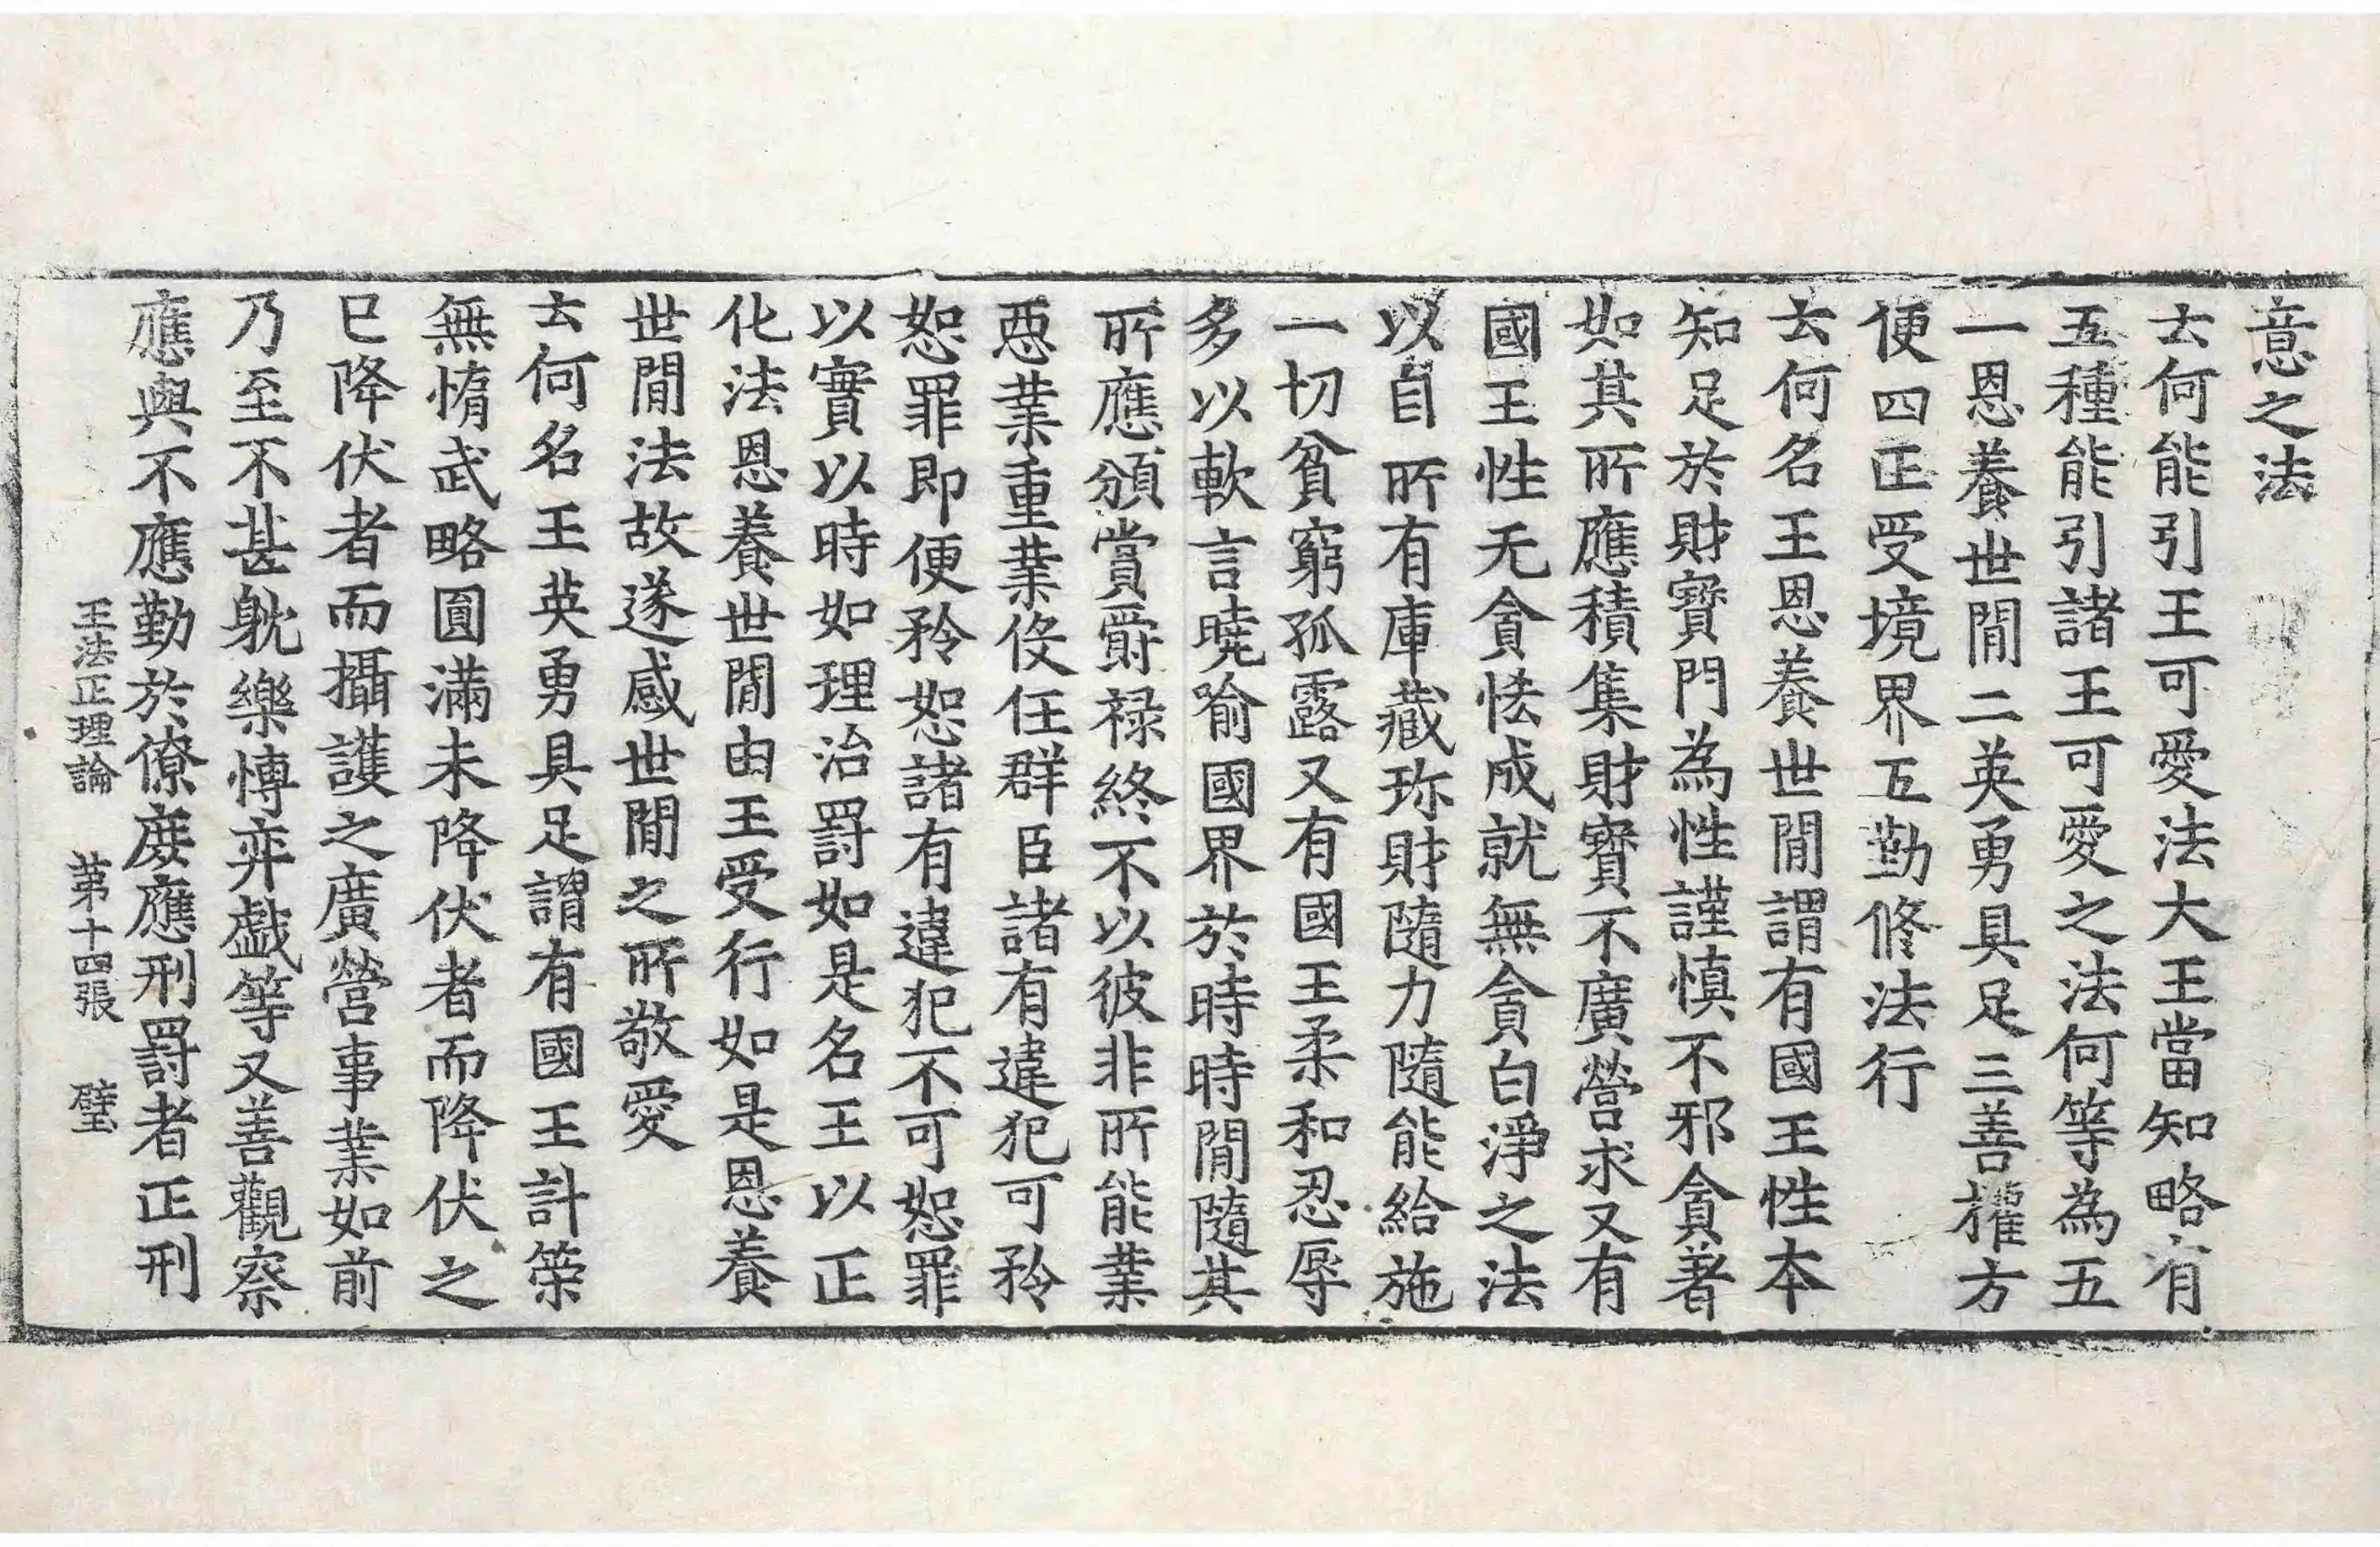 意之法
云何能引王可愛法大王當知略有
五種能引諸王可愛之法何等為五
一恩養世閒二英勇具足三善權方
便四正受境界五勤修法行
云何名王恩養世閒謂有國王性本
知足於財寶門為性謹慎不邪貪著
如其所應積集財寶不廣營求又有
國王性无貪恡成就無貪白淨之法
以自所有庫藏珎財隨力隨能給施
一切貧窮孤露又有國王柔和忍辱
多以軟言曉喻國界於時時閒隨其
所應頒賞爵禄終不以彼非所能業
惡業重業役任群臣諸有違犯可矜
恕罪即便矜恕諸有違犯不可恕罪
以實以時如理治罰如是名王以正
化法恩養世閒由王受行如是恩養
世閒法故遂感世閒之所敬愛
云何名王英勇具足謂有國王計策
無惰武略圓滿未降伏者而降伏之
已降伏者而攝護之廣營事業如前
乃至不甚躭樂慱弈戱等又善觀察
應與不應勤於僚庶應刑罰者正刑
王法正理論　第十四張　璧